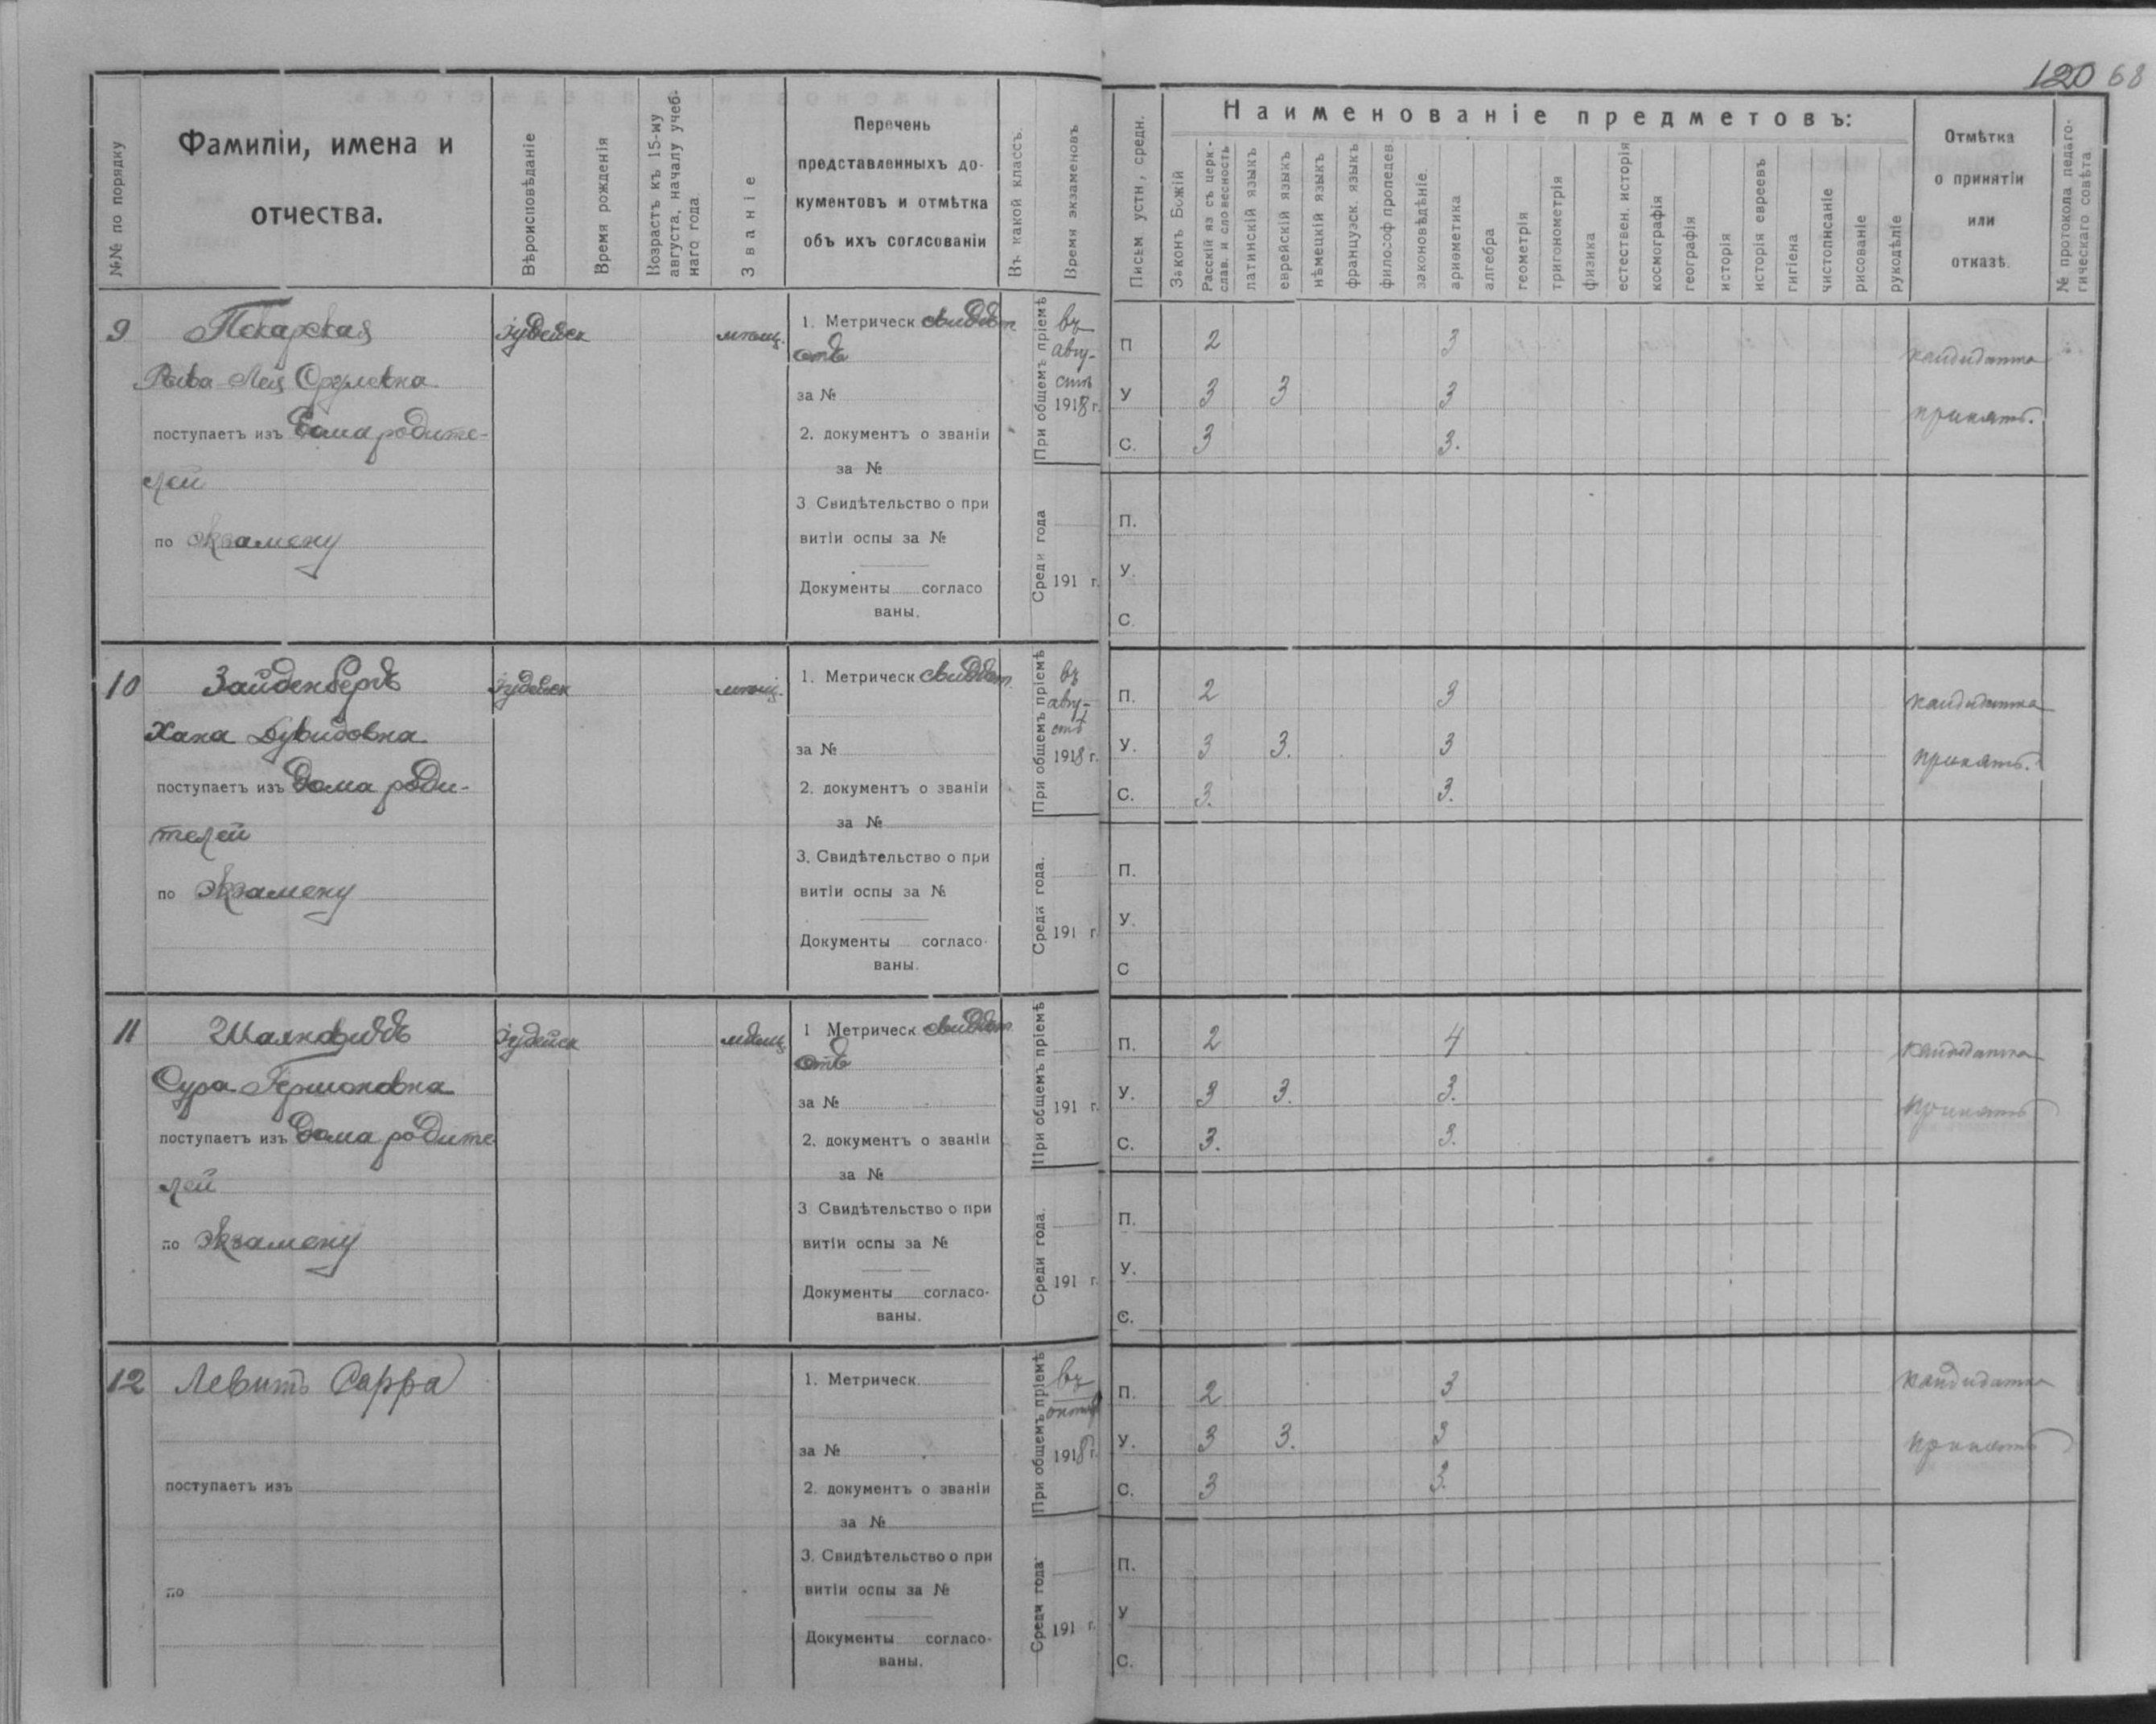 120 68
№№ по порядку
Фамиліи, имена и
отчества.
Вѣроисповѣданіе
Время рожденія
Возрастъ къ 15-му
августа, началу учеб-
наго года
Званіе
Перечень
представленныхъ до-
кументовъ и отмѣтка
объ ихъ соглсованіи
Въ какой классъ.
Время экзаменовъ
Письм устн, средн.
Наименованіе предметовъ:
Законъ Божій
Расскій яз съ церк.-
слав. и словесность
латинскій языкъ
еврейскій языкъ
нѣмецкій языкъ
француэск. языкъ
философ пропедев
законовѣдѣніе
ариѳметика
алгебра
геометрія
тригонометрія
физика
естествен. исторія
космографія
географія
исторія
исторія евреевъ
гигіена
чистописаніе
рисованіе
рукодѣліе
Отмѣтка
о принятіи
или
отказѣ.
№ протокола педаго-
гическаго совѣта
9 Пекарская Іудейск мѣщ. 1. Метрическ свидѣт
Рива Лея
поступаетъ изъ дома родите-
лей
по экзамену
за №
2. документъ о званіи
за №
3 Свидѣтельство о при
витіи оспы за №
Документы согласо
ваны.
При общемъ пріемѣ
въ
авгу-
стѣ
1918 г.
Среди года
191 г.
П 2 3 кандидатка
У 3 3 3 принять.
С. 3 3.
П.
У.
С.
10 Зайденбергъ Іудейск мѣщ. 1. Метрическ свидѣт.
Хана Дувидовна
поступаетъ изъ дома роди-
телей
по экзамену
за №
2. документъ о званіи
за №
3. Свидѣтельство о при
витіи оспы за №
Документы согласо-
ваны.
При общемъ пріемѣ
въ
авгу-
стѣ
1918 г.
Среди года.
191 г
П. 2 3 кандидатка
У. 3 3. 3 принять.
С. 3. 3.
П.
У.
С
11 Іудейск мѣщ 1 Метрическ свидѣт
Сура
поступаетъ изъ дома родите-
лей
по экзамену
за №
2. документъ о званіи
за №
3 Свидѣтельство о при
витіи оспы за №
Документы согласо-
ваны.
При общемъ пріемѣ
191 г.
Среди года.
191 г.
П. 2 4 кандидатка
У. 3 3. 3. принять
С. 3. 3.
П.
У.
С.
12 Левитъ Сарра 1. Метрическ.
поступаетъ изъ
по
за №
2. документъ о званіи
за №
3. Свидѣтельство о при
витіи оспы за №
Документы согласо-
ваны.
При общемъ пріемѣ
въ
1918 г.
Среди года
191 г.
П. 2 3 кандидатка
У. 3 3. 3 принять
С. 3 3.
П.
У
С.